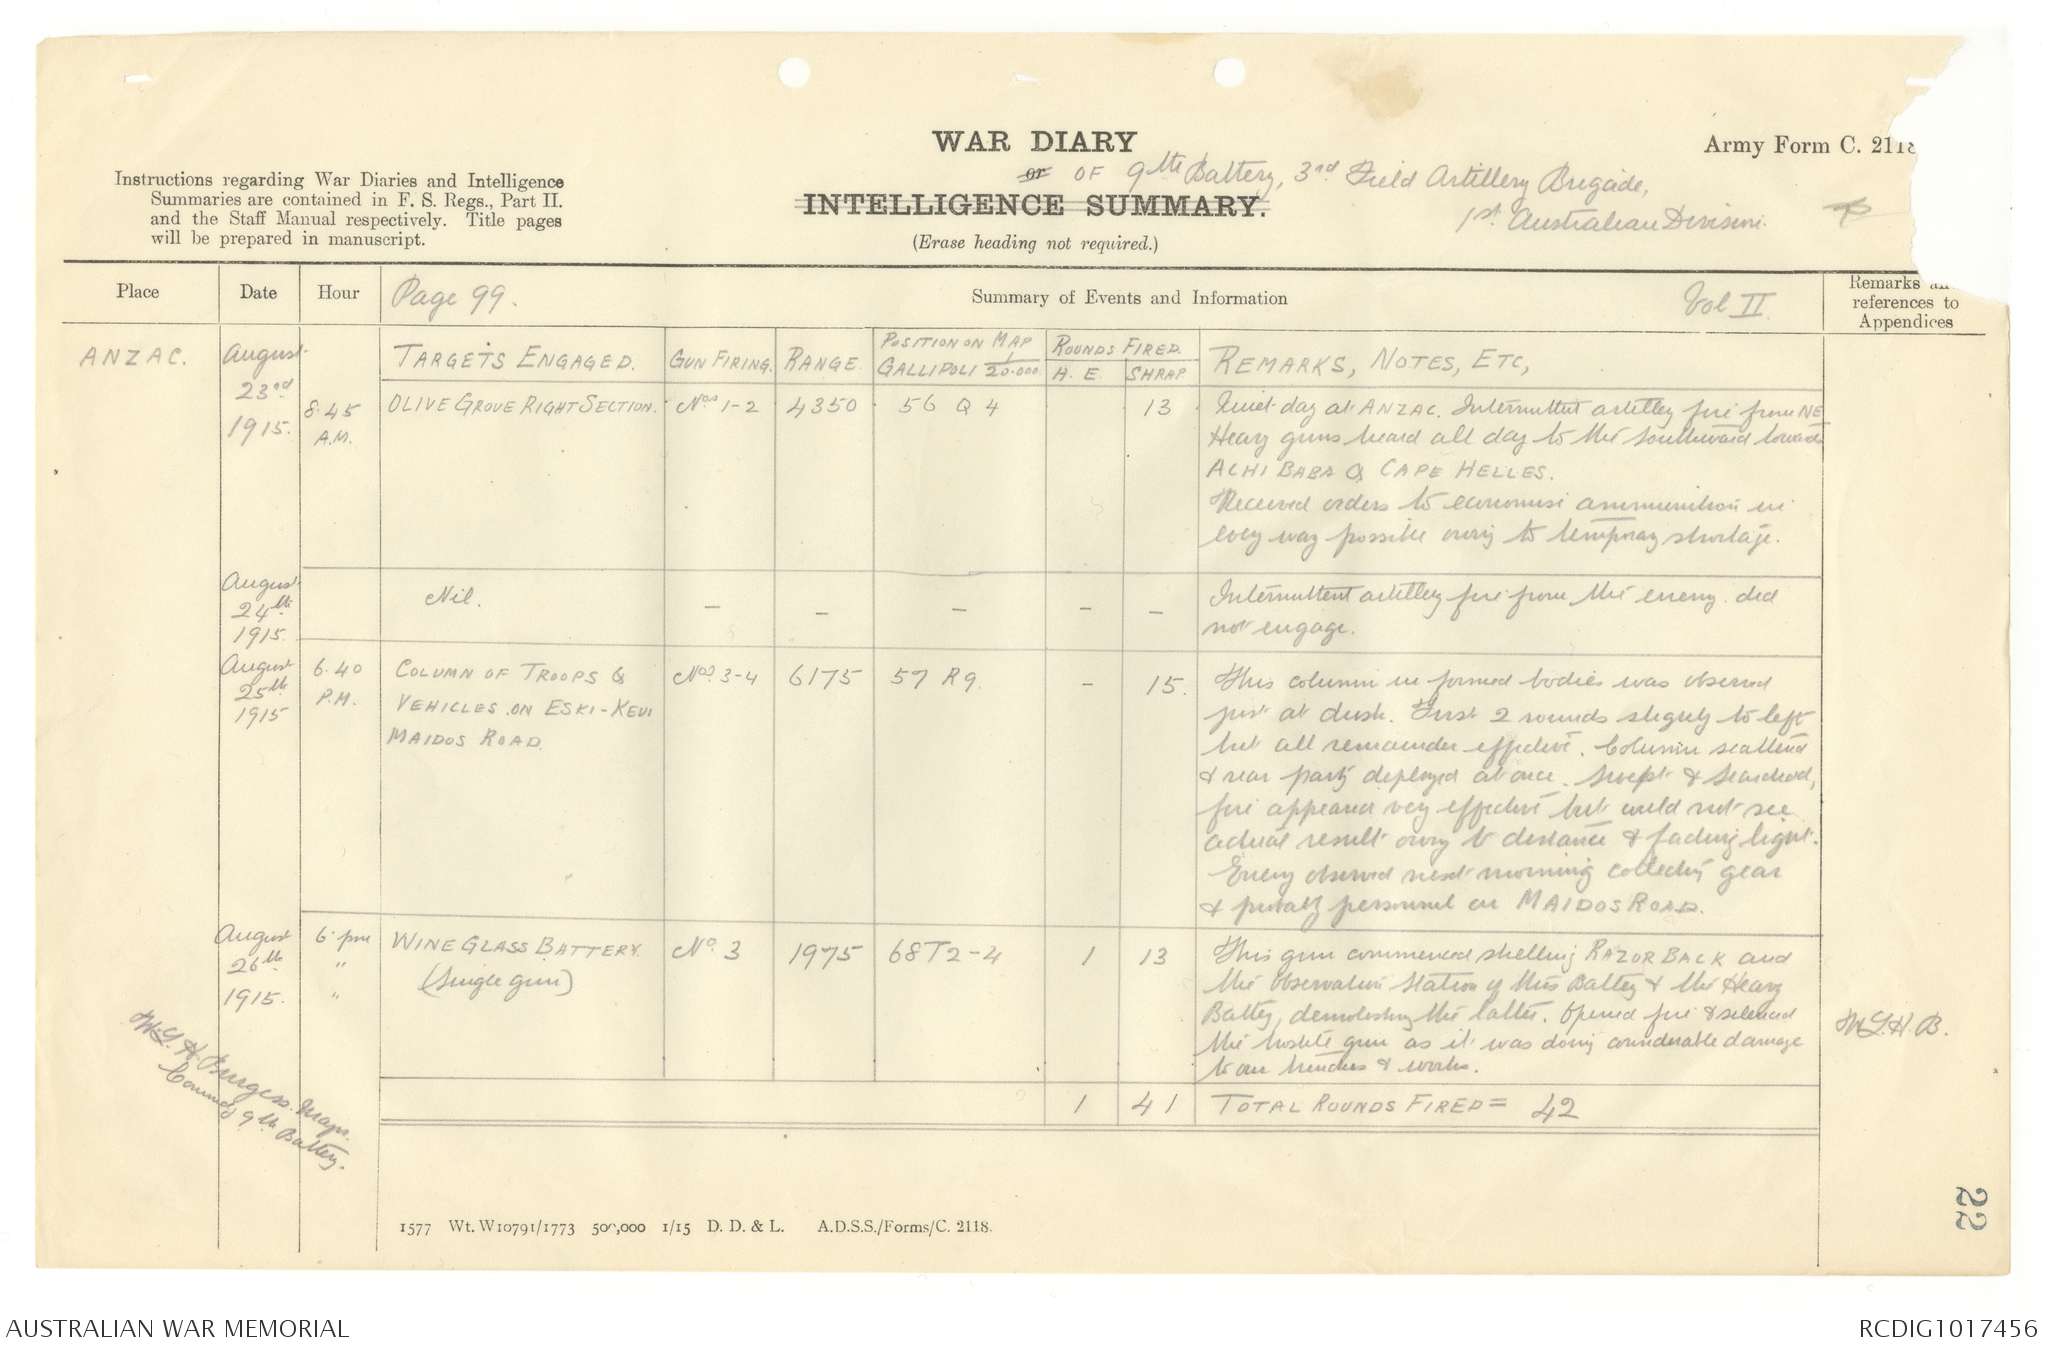 WAR DIARY
Army Form C. 2118
or OF 9th Battery, 3rd Field Artillery Brigade,
INTELLIGENCE SUMMARY.
1st Australian Division.
(Erase heading not required.)
Instructions regarding War Diaries and Intelligence
Summaries are contained in F. S. Regs., Part II.
and the Staff Manual respectively. Title pages
will be prepared in manuscript.
Place
Date
Hour
Page 99.
Summary of Events and Information
Vol II.
Remarks and
references to
Appendices
TARGETS ENGAGED.
GUN FIRING.
RANGE.
POSITION ON MAP
GALLIPOLI 1/20.000
ROUNDS FIRED.
H. E.
SHRAP
REMARKS, NOTES, ETC,
ANZAC.
August
23rd
1915.
8.45
A.M.
OLIVE GROVE RIGHT SECTION.
Nos 1-2
4350
56 Q 4
13
Quiet day at ANZAC. Intermittent artillery fire from NE
Heavy guns heard all day to the Southward towards
ACHI BABA & CAPE HELLES.
Received orders to economise ammunition in
every way possible owing to temporary shortage.
August
24th
1915.
Nil.
—
—
—
—
—
Intermittent artillery fire from the enemy. did
not engage.
August
25th
1915
6.40
P.M.
COLUMN OF TROOPS &
VEHICLES ON ESKI-KEUI
MAIDOS ROAD.
Nos. 3-4
6175
57 R9.
-
15.
This column in formed bodies was observed
just at dusk. First 2 rounds slightly to left
but all remainder effective. Column scattered
& rear party deployed at once. Swept & searched,
fire appeared very effective but could not see
actual result owing to distance & fading light.
Enemy observed next morning collecting gear
& personnel on MAIDOS ROAD.
August
26th
1915.
6 pm
"
"
WINE GLASS BATTERY.
(Single gun)
No. 3
1975
68T2-4
1
13
This gun commenced shelling RAZOR BACK and
the Observation Station of this Battery & the Heavy
Battery, demolishing the latter. Opened fire & silenced
the hostile gun as it was doing considerable damage
to our trenches & works.
W.L.H.B.
1
41
TOTAL ROUNDS FIRED = 42
W.L.H. Burgess. Major.
Commdg 9th Battery.
22
1577 Wt. W10791/1773 500,000 1/15 D. D. & L. A.D.S.S./Forms/C. 2118.
AUSTRALIAN WAR MEMORIAL
RCDIG1017456